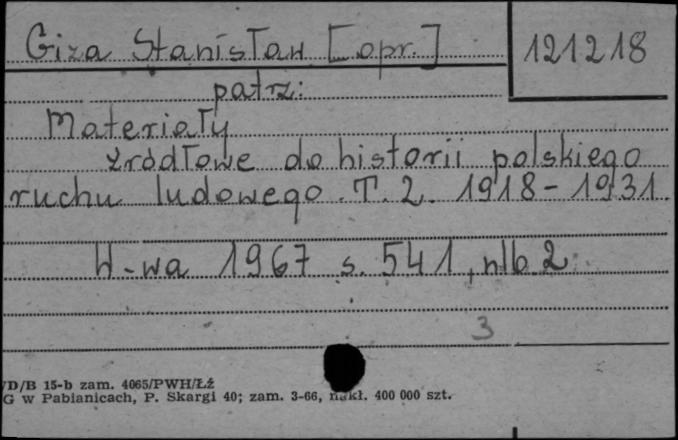 Giza Stanisław [opr.] 121218
patrz:
Materiały
źródłowe do historii polskiego
ruchu ludowego. T. 2. 1918-1931.
W-wa 1967 s. 541, nlb 2
3
/D/B 15-b zam. 4065/PWH/Łź
G w Pabianicach, P. Skargi 40; zam. 3-66, nakł. 400 000 szt.